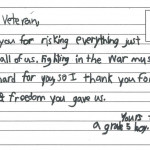 Veteran,
you for risking everything just
all of us. Fighting in the war mus
hard for you, so I thank you for
& freedom you gave us.
Yours t
a grade 5 boy.